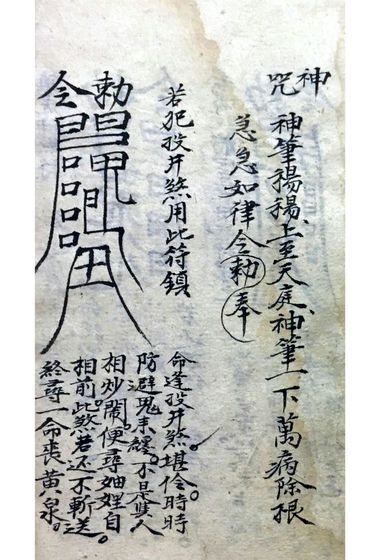 神咒
神筆揚揚、上至天庭、神筆一下萬病除根
急急如律令勅奉
若犯投井煞用此符鎮
勅令
命逢投井煞。堪伶時時
防避鬼来纏。不是與人
相炒鬧。便尋妯娌自
相前。此煞若还不斬送
終尋一命喪黃泉。